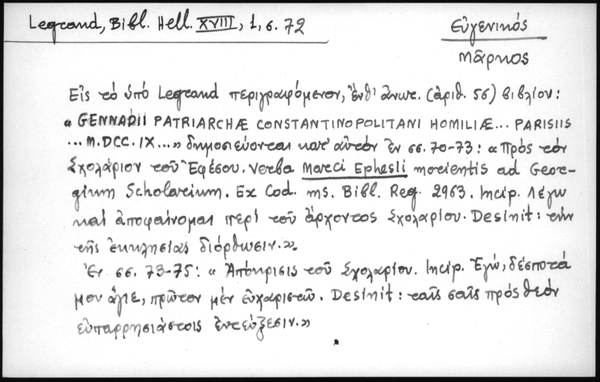 Legrand, Bibl. Hell. XVIII, 1, σ. 72
Εὐγενικός
Μᾶρκος
Εἰς τό ὑπό Legrand περιγραφόμενον, ἔνθ' ἀνωτ. (ἀριθ. 56) βιβλίον:
« GENNADII PATRIARCHÆ CONSTANTINOPOLITANI HOMILIÆ... PARISIIS
... M.DCC.IX...» δημοσιεύονται κατ' αὐτόν ἐν σσ. 70-73: « Πρός τόν
Σχολάριον τοῦ Ἐφέσου. Verba Marci Ephesii morientis ad Geor-
gium Scholarium. Ex Cod. ms. Bibl. Reg. 2963. Incip. Λέγω
καί ἀποφαίνομαι περί τοῦ ἄρχοντος Σχολαρίου. Desinit: τήν
τῆς ἐκκλησίας διόρθωσιν.».
Ἐν σσ. 73-75: « Ἀπόκρισις τοῦ Σχολαρίου. Incip. Ἐγώ, δέσποτά
μου ἅγιε, πρῶτον μέν εὐχαριστῶ. Desinit: ταῖς σαῖς πρός θεόν
εὐπαρρησιάστοις ἐντεύξεσιν.»